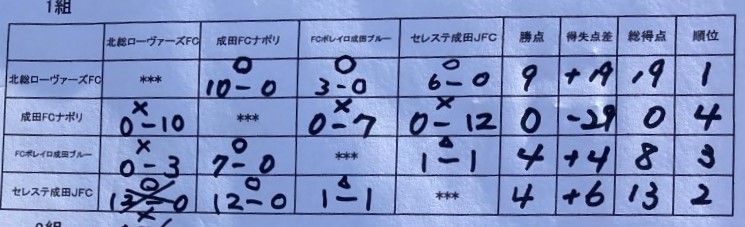 1組
北総ローヴァーズFC 成田FCナポリ FCボレイロ成田ブルー セレステ成田JFC 勝点 得失点差 総得点 順位
北総ローヴァーズFC *** ○ 10-0 ○ 3-0 ○ 6-0 9 +19 19 1
成田FCナポリ × 0-10 *** × 0-7 × 0-12 0 -29 0 4
FCボレイロ成田ブルー × 0-3 ○ 7-0 *** △ 1-1 4 +4 8 3
セレステ成田JFC × ○ 12-0 △ 1-1 *** 4 +6 13 2